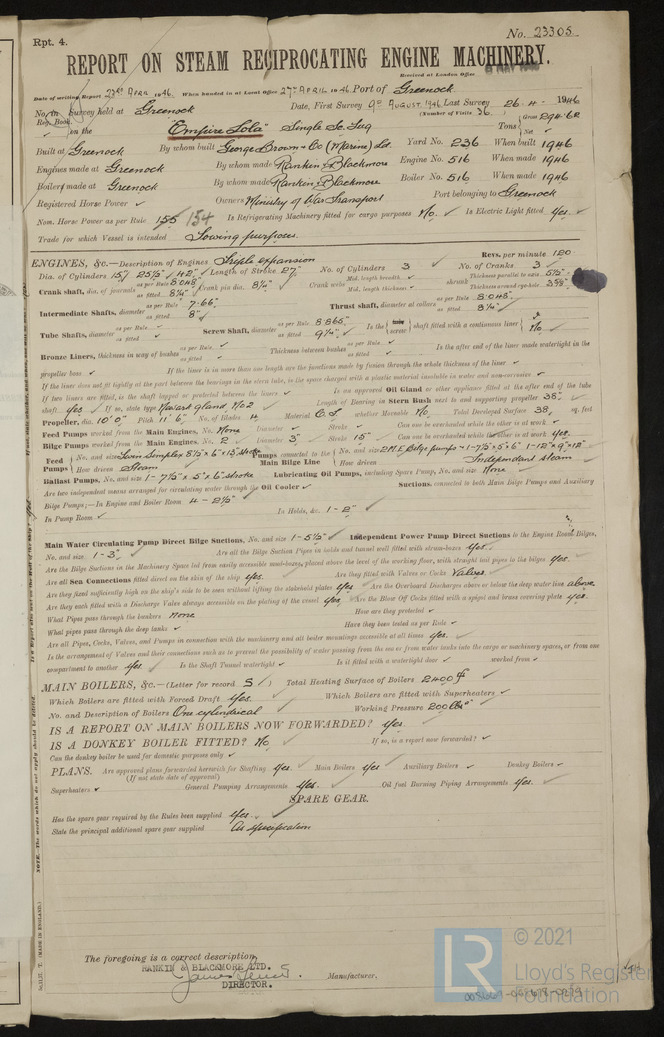 Rpt. 4.
No. 23305.
REPORT ON STEAM RECIPROCATING ENGINE MACHINERY.
Received at London Office
Date of writing Report 23rd APRIL 1946. When handed in at Local Office 27th APRIL 1946 Port of Greenock.
No. in Survey held at Greenock Date, First Survey 9th AUGUST, 1946 Last Survey 26-4-1946
Reg. Book. (Number of Visits 36)
on the "Empire Lola" Single Sc. Tug Tons Gross 294.62 Net
Built at Greenock By whom built George Brown & Co (Marine) Ltd. Yard No. 236 When built 1946
Engines made at Greenock By whom made Rankin & Blackmore Engine No. 516 When made 1946
Boilers made at Greenock By whom made Rankin & Blackmore Boiler No. 516 When made 1946
Registered Horse Power Owners Ministry of War Transport Port belonging to Greenock
Nom. Horse Power as per Rule 155 154 Is Refrigerating Machinery fitted for cargo purposes No. Is Electric Light fitted Yes.
Trade for which Vessel is intended Towing purposes.
ENGINES, &c.—Description of Engines Triple expansion Revs. per minute 120
Dia. of Cylinders 15½" 25½" 42" Length of Stroke 27" No. of Cylinders 3 No. of Cranks 3
Crank shaft, dia. of journals as per Rule 8.048" as fitted 8¼" Crank pin dia. 8¼" Crank webs Mid. length breadth Mid. length thickness Thickness parallel to axis 5½" Thickness around eye-hole 3⅝"
Intermediate Shafts, diameter as per Rule 7.66" as fitted 8" Thrust shaft, diameter at collars as per Rule 8.048" as fitted 8¼"
Tube Shafts, diameter as per Rule as fitted Screw Shaft, diameter as per Rule 8.865" as fitted 9¼" Is the screw shaft fitted with a continuous liner No.
Bronze Liners, thickness in way of bushes as per Rule as fitted Thickness between bushes as per Rule as fitted Is the after end of the liner made watertight in the
propeller boss If the liner is in more than one length are the junctions made by fusion through the whole thickness of the liner
If the liner does not fit tightly at the part between the bearings in the stern tube, is the space charged with a plastic material insoluble in water and non-corrosive
If two liners are fitted, is the shaft lapped or protected between the liners Is an approved Oil Gland or other appliance fitted at the after end of the tube
shaft. Yes. If so, state type Newark gland, No2 Length of Bearing in Stern Bush next to and supporting propeller 38".
Propeller, dia. 10'0" Pitch 11'6" No. of Blades 4 Material C.I. whether Moveable No. Total Developed Surface 38 sq. feet
Feed Pumps worked from the Main Engines, No. None Diameter Stroke Can one be overhauled while the other is at work
Bilge Pumps worked from the Main Engines, No. 2 Diameter 3" Stroke 15" Can one be overhauled while the other is at work Yes.
Feed Pumps No. and size Twin Simplex 8½" x 6" x 13" stroke How driven Steam Pumps connected to the Main Bilge Line No. and size 2 M.E. Bilge pumps - 1-7½" x 5" x 6" 1-12" x 9" x 12" How driven Independant steam
Ballast Pumps, No. and size 1- 7½" x 5" x 6" stroke Lubricating Oil Pumps, including Spare Pump, No. and size None
Are two independent means arranged for circulating water through the Oil Cooler Suctions, connected to both Main Bilge Pumps and Auxiliary
Bilge Pumps;—In Engine and Boiler Room 4 - 2½"
In Pump Room In Holds, &c. 1 - 2"
Main Water Circulating Pump Direct Bilge Suctions, No. and size 1 - 5½" Independent Power Pump Direct Suctions to the Engine Room Bilges,
No. and size 1 - 3" Are all the Bilge Suction Pipes in holds and tunnel well fitted with strum-boxes Yes.
Are the Bilge Suctions in the Machinery Space led from easily accessible mud-boxes, placed above the level of the working floor, with straight tail pipes to the bilges Yes.
Are all Sea Connections fitted direct on the skin of the ship Yes. Are they fitted with Valves or Cocks Valves.
Are they fixed sufficiently high on the ship's side to be seen without lifting the stokehold plates Yes Are the Overboard Discharges above or below the deep water line above.
Are they each fitted with a Discharge Valve always accessible on the plating of the vessel Yes Are the Blow Off Cocks fitted with a spigot and brass covering plate Yes.
What Pipes pass through the bunkers None How are they protected
What pipes pass through the deep tanks Have they been tested as per Rule
Are all Pipes, Cocks, Valves, and Pumps in connection with the machinery and all boiler mountings accessible at all times Yes.
Is the arrangement of Valves and their connections such as to prevent the possibility of water passing from the sea or from water tanks into the cargo or machinery spaces, or from one
compartment to another Yes. Is the Shaft Tunnel watertight Is it fitted with a watertight door worked from
MAIN BOILERS, &c.—(Letter for record S) Total Heating Surface of Boilers 2400
Which Boilers are fitted with Forced Draft Yes. Which Boilers are fitted with Superheaters
No. and Description of Boilers One cylindrical Working Pressure 200 lbs
IS A REPORT ON MAIN BOILERS NOW FORWARDED? Yes.
IS A DONKEY BOILER FITTED? No. If so, is a report now forwarded?
Can the donkey boiler be used for domestic purposes only
PLANS. Are approved plans forwarded herewith for Shafting Yes. Main Boilers Yes Auxiliary Boilers Donkey Boilers
(If not state date of approval)
Superheaters General Pumping Arrangements Yes. Oil fuel Burning Piping Arrangements Yes.
SPARE GEAR.
Has the spare gear required by the Rules been supplied Yes.
State the principal additional spare gear supplied As specification
The foregoing is a correct description,
RANKIN & BLACKMORE LTD.
DIRECTOR. Manufacturer.
NOTE.—The words which do not apply should be deleted.
(MADE IN ENGLAND.)
LR
© 2021
Lloyd's Register
Foundation